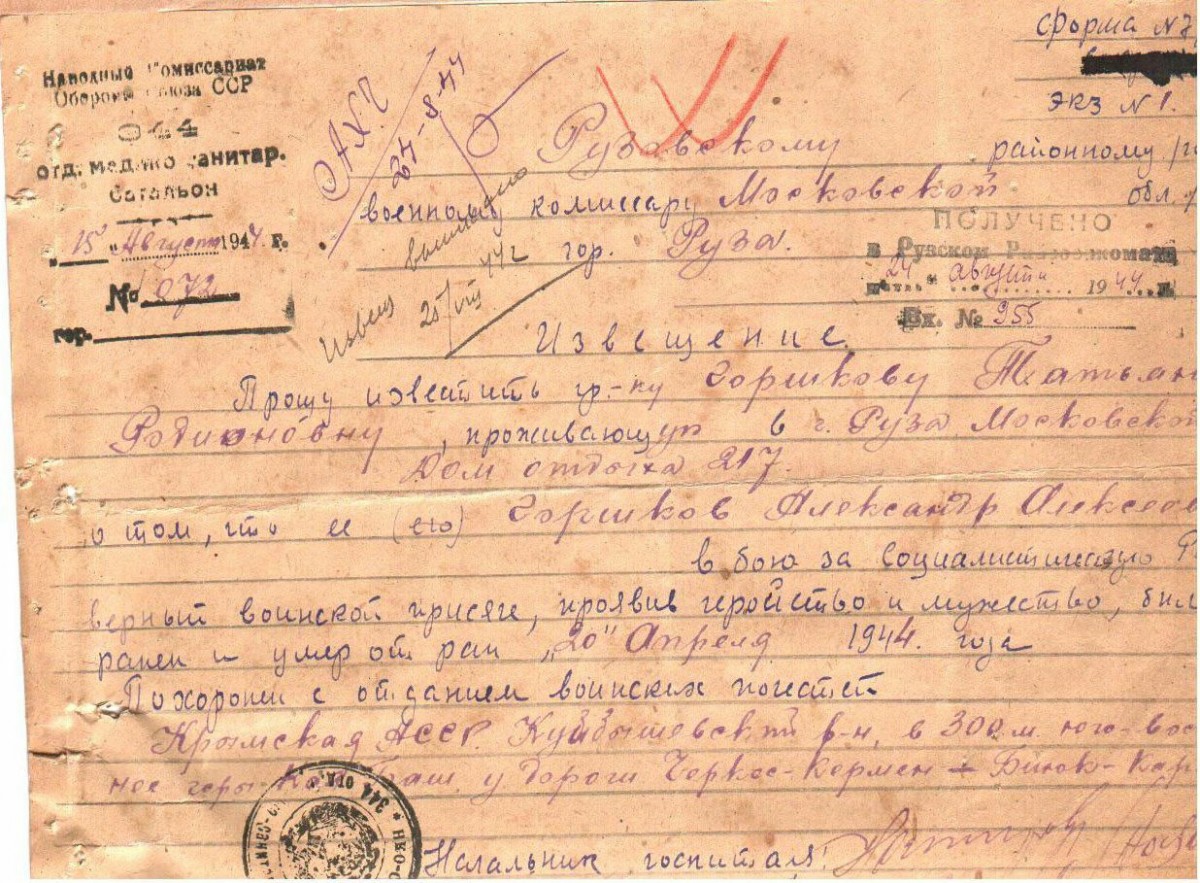 Форма №7
экз №1.
Народный Комиссариат
Обороны Союза ССР
344
отд. медико санитар.
батальон
"15" Августа 1944 г.
№ 072
гор.
АХЧ
24-8-44
Рузовскому районному
военному комиссару Московской обл.
гор. Руза.
Извещ выслано
25/VIII 44г
ПОЛУЧЕНО
в Рузском Райвоенкомате
"24" августа 1944 г.
Вх. № 955
Извещение.
Прошу известить гр-ку Горшкову Татьян
Родионовну, проживающую в г. Руза Московской
Дом отдыха 217.
о том, что ее (его) Горшков Александр Алексеев
в бою за социалистическую Р
верный воинской присяге, проявив геройство и мужество, был
ранен и умер от ран "20" Апреля 1944. года
Похоронен с отданием воинских почестей
Крымская АССР. Куйбышевский р-н, в 300 м. юго-вос
нее горы Баш у дороги Черкес-Кермен - Биюк-Кар
344 ОТД.
НКО-С
Начальник госпиталя: